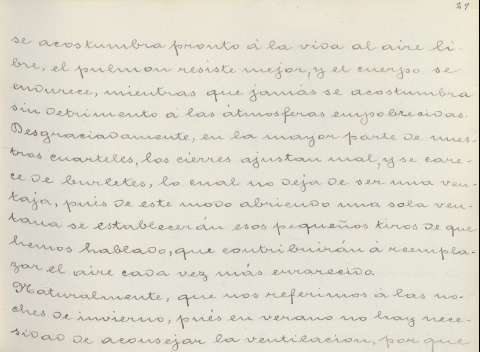 27
se acostumbra pronto á la vida al aire li-
bre, el pulmon resiste mejor, y el cuerpo se
endurece, mientras que jamás se acostumbra
sin detrimento á las átmosferas empobrecidas.
Desgraciadamente, en la mayor parte de nues-
tros cuarteles, los cierres ajustan mal, y se care-
ce de burletes, lo cual no deja de ser una ven-
taja, pués de este modo abriendo una sola ven-
tana se establecerán esos pequeños tiros de que
hemos hablado, que contribuirán á reempla-
zar el aire cada vez más enrarecido
Naturalmente, que nos referimos á las no-
ches de invierno, pués en verano no hay nece-
sidad de aconsejar la ventilacion, por que